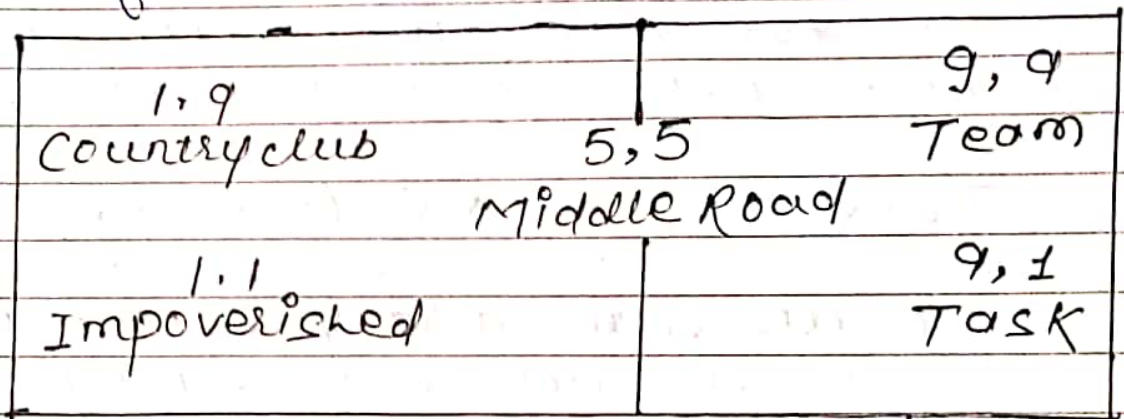 1,9
9,9
Countryclub
5,5
Team
Middle Road
1,1
9,1
Impoverished
Task